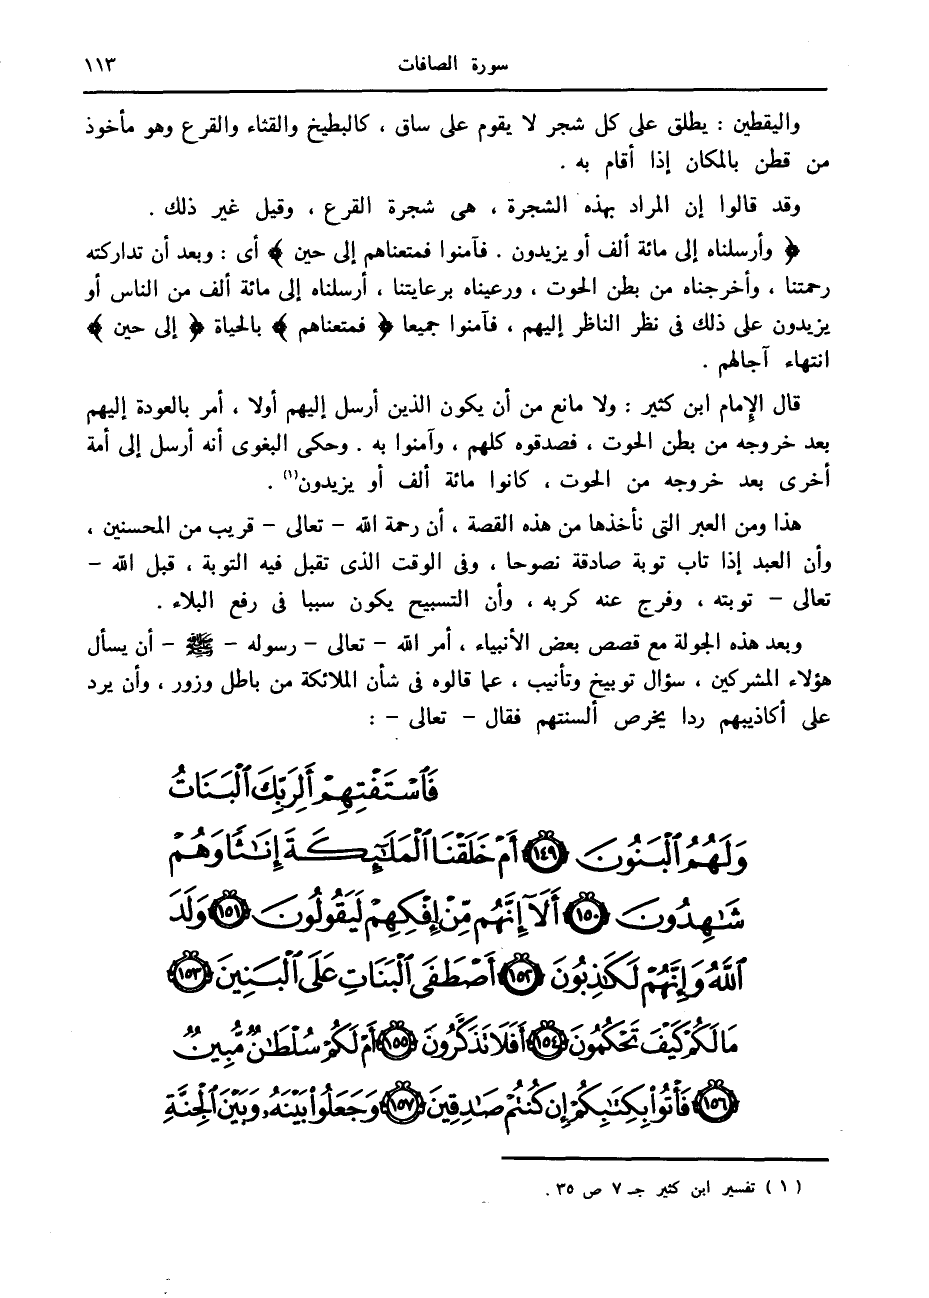 سورة الصافات ١١٣
واليقطين : يطلق على كل شجر لا يقوم على ساق ، كالبطيخ والقثاء والقرع وهو مأخوذ
من قطن بالمكان إذا أقام به .
وقد قالوا إن المراد بهذه الشجرة ، هى شجرة القرع ، وقيل غير ذلك .
﴿ وأرسلناه إلى مائة ألف أو يزيدون . فآمنوا فمتعناهم إلى حين ﴾ أى : وبعد أن تداركته
رحمتنا ، وأخرجناه من بطن الحوت ، ورعيناه برعايتنا ، أرسلناه إلى مائة ألف من الناس أو
يزيدون على ذلك فى نظر الناظر إليهم ، فآمنوا جميعا ﴿ فمتعناهم ﴾ بالحياة ﴿ إلى حين ﴾
انتهاء آجالهم .
قال الإمام ابن كثير : ولا مانع من أن يكون الذين أرسل إليهم أولا ، أمر بالعودة إليهم
بعد خروجه من بطن الحوت ، فصدقوه كلهم ، وآمنوا به . وحكى البغوى أنه أرسل إلى أمة
أخرى بعد خروجه من الحوت ، كانوا مائة ألف أو يزيدون(١) .
هذا ومن العبر التى نأخذها من هذه القصة ، أن رحمة الله – تعالى – قريب من المحسنين ،
وأن العبد إذا تاب توبة صادقة نصوحا ، وفى الوقت الذى تقبل فيه التوبة ، قبل الله –
تعالى – توبته ، وفرج عنه كربه ، وأن التسبيح يكون سببا فى رفع البلاء .
وبعد هذه الجولة مع قصص بعض الأنبياء ، أمر الله – تعالى – رسوله – ﷺ – أن يسأل
هؤلاء المشركين ، سؤال توبيخ وتأنيب ، عما قالوه فى شأن الملائكة من باطل وزور ، وأن يرد
على أكاذيبهم ردا يخرص ألسنتهم فقال – تعالى – :
فَٱسْتَفْتِهِمْ أَلِرَبِّكَ ٱلْبَنَاتُ
وَلَهُمُ ٱلْبَنُونَ ﴿١٤٩﴾ أَمْ خَلَقْنَا ٱلْمَلَـٰٓئِكَةَ إِنَـٰثًا وَهُمْ
شَـٰهِدُونَ ﴿١٥٠﴾ أَلَآ إِنَّهُم مِّنْ إِفْكِهِمْ لَيَقُولُونَ ﴿١٥١﴾ وَلَدَ
ٱللَّهُ وَإِنَّهُمْ لَكَـٰذِبُونَ ﴿١٥٢﴾ أَصْطَفَى ٱلْبَنَاتِ عَلَى ٱلْبَنِينَ ﴿١٥٣﴾
مَا لَكُمْ كَيْفَ تَحْكُمُونَ ﴿١٥٤﴾ أَفَلَا تَذَكَّرُونَ ﴿١٥٥﴾ أَمْ لَكُمْ سُلْطَـٰنٌ مُّبِينٌ
﴿١٥٦﴾ فَأْتُوا۟ بِكِتَـٰبِكُمْ إِن كُنتُمْ صَـٰدِقِينَ ﴿١٥٧﴾ وَجَعَلُوا۟ بَيْنَهُۥ وَبَيْنَ ٱلْجِنَّةِ
( ١ ) تفسير ابن كثير جـ ٧ ص ٣٥ .